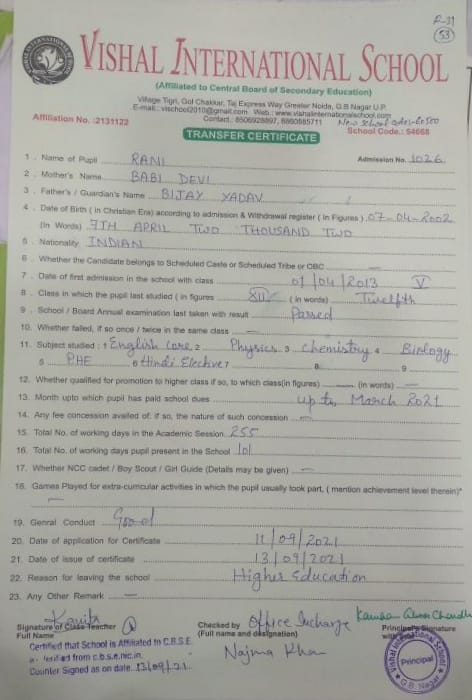 F-31
53
VISHAL INTERNATIONAL SCHOOL
(Affiliated to Central Board of Secondary Education)
Village Tigri, Gol Chakkar, Taj Express Way Greater Noida, G.B Nagar U.P.
E-mail.: vischool2010@gmail.com Web.: www.vishalinternationalschool.com
Contact.: 8506928897, 8860885711
New School code-60500
Affiliation No. :2131122
School Code.: 54668
TRANSFER CERTIFICATE
1 . Name of Pupil RANI Admission No. 1026.
2 . Mother's Name BABI DEVI
3 . Father's / Guardian's Name BIJAY YADAV
4 . Date of Birth ( in Christian Era) according to admission & Withdrawal register ( in Figures ) 07-04-2002
(In Words) 7TH APRIL TWO THOUSAND TWO
5 . Nationality INDIAN
6 . Whether the Candidate belongs to Scheduled Caste or Scheduled Tribe or OBC —
7 . Date of first admission in the school with class 01/04/2013 V
8 . Class in which the pupil last studied ( in figures XII ( in words) Twelfth
9 . School / Board Annual examination last taken with result Passed
10. Whether failed, if so once / twice in the same class —
11. Subject studied : 1 English Core 2 Physics 3 Chemistry 4 Biology
5 PHE 6 Hindi Elective 7 8 9
12. Whether qualified for promotion to higher class if so, to which class(in figures) — (in words) —
13. Month upto which pupil has paid school dues up to March 2021
14. Any fee concession availed of: if so, the nature of such concession —
15. Total No. of working days in the Academic Session 255
16. Total No. of working days pupil present in the School 101
17. Whether NCC cadet / Boy Scout / Girl Guide (Details may be given) —
18. Games Played for extra-curricular activities in which the pupil usually took part, ( mention achievement level therein)*
—
19. Genral Conduct Good
20. Date of application for Certificate 11/09/2021
21. Date of issue of certificate 13/09/2021
22. Reason for leaving the school Higher Education
23. Any Other Remark —
Signature of Class Teacher
Full Name
Checked by Office Incharge
(Full name and designation)
Najma Khan
Principal's Signature
with
Certified that School is Affiliated to C.B.S.E.
Verified from c.b.s.e.nic.in.
Counter Signed as on date 13/09/21
Vishal International School
Principal
G.B. Nagar